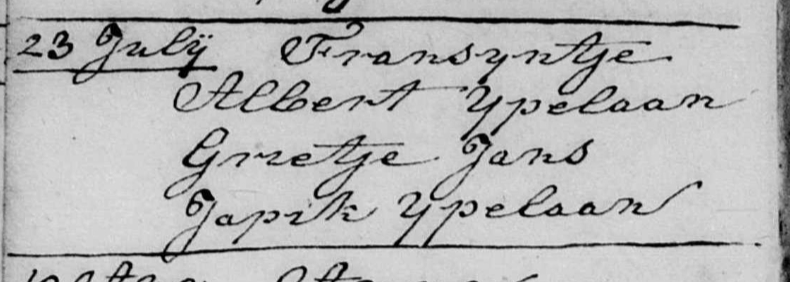 23 Julÿ Fransyntje
Albert Ypelaan
Grietje Jans
Japik Ypelaan